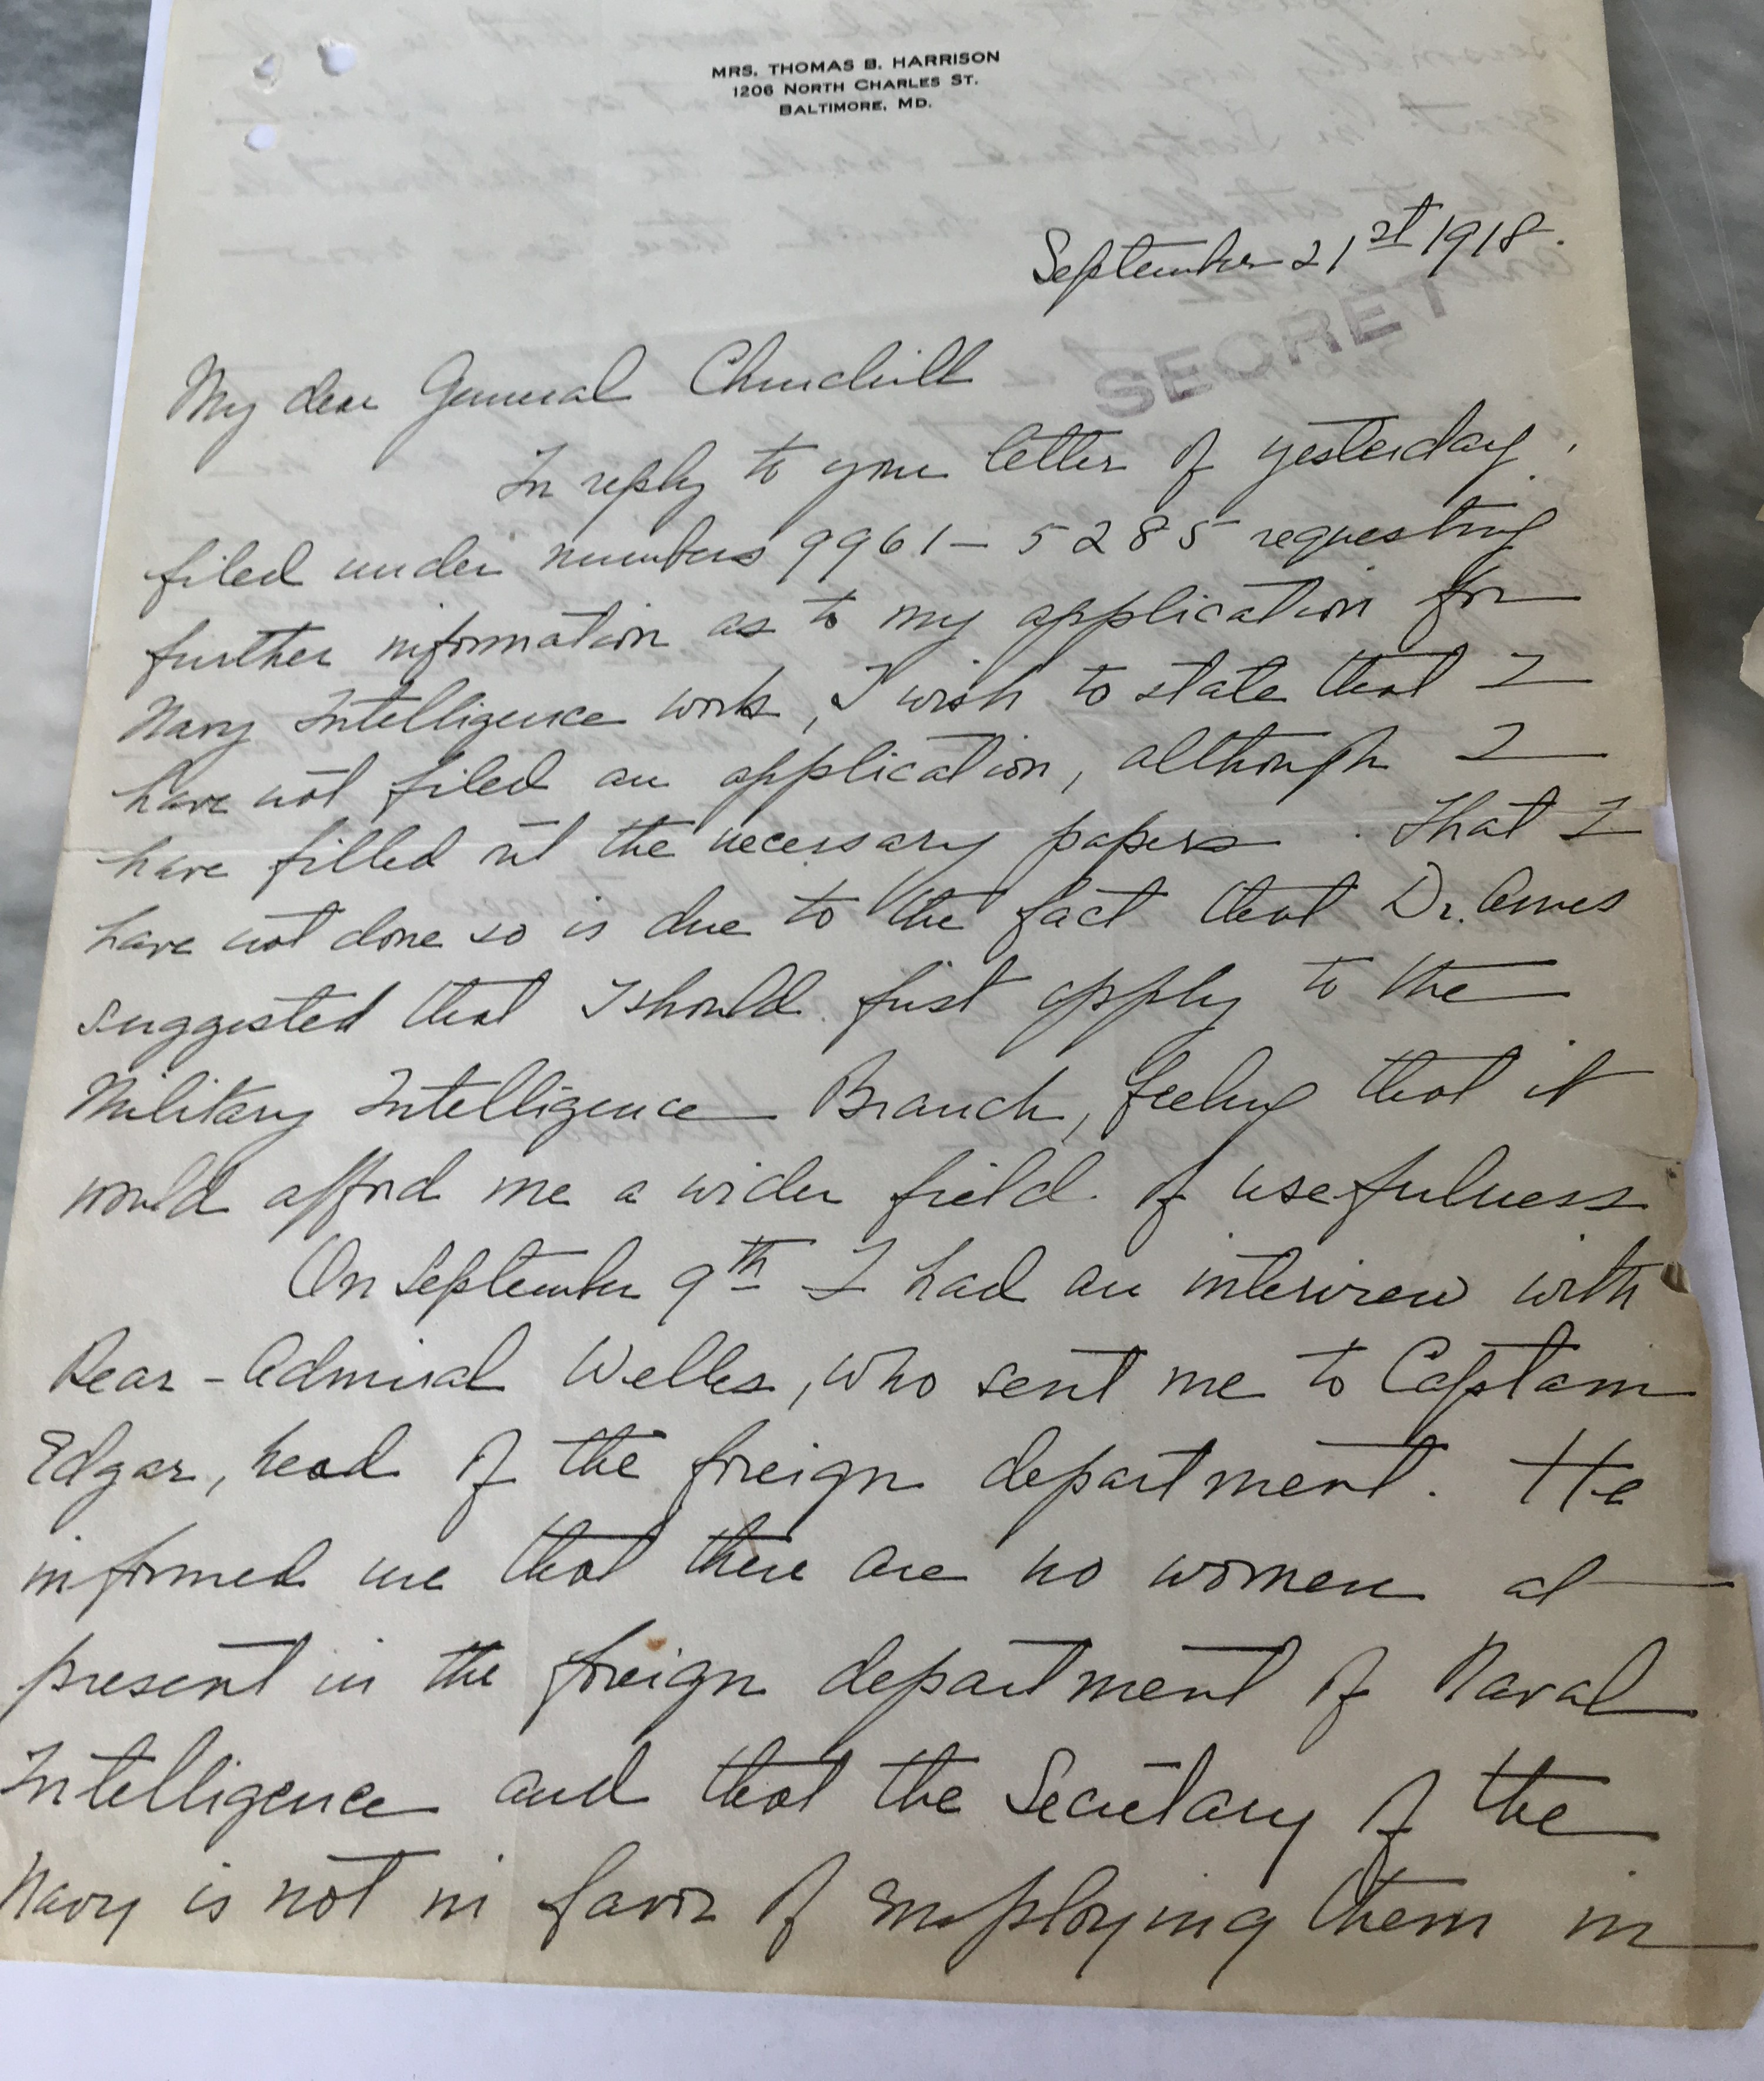 MRS. THOMAS B. HARRISON
1206 NORTH CHARLES ST.
BALTIMORE, MD.
September 21st 1918.
SECRET
My dear General Churchill
In reply to your letter of yesterday,
filed under numbers 9961-5285 requesting
further information as to my application for
Navy Intelligence work, I wish to state that I
have not filed an application, although I
have filled out the necessary papers. That I
have not done so is due to the fact that Dr. Ames
suggested that I should first apply to the
Military Intelligence Branch, feeling that it
would afford me a wider field of usefulness
On September 9th I had an interview with
Rear-Admiral Welles, who sent me to Captain
Edgar, head of the foreign department. He
informed me that there are no women at
present in the foreign department of Naval
Intelligence and that the Secretary of the
Navy is not in favor of employing them in